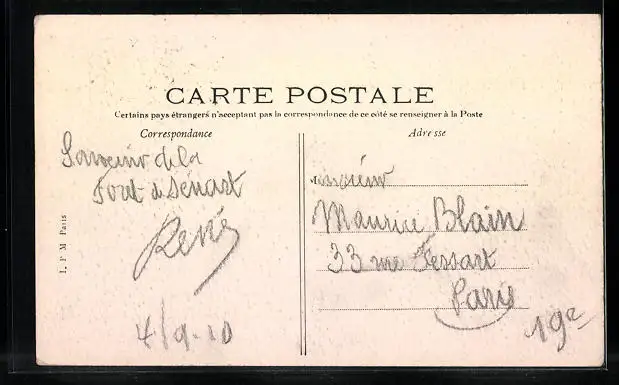 CARTE POSTALE
Certains pays étrangers n'acceptant pas la correspondance de ce côté se renseigner à la Poste
Correspondance
Souvenir de la
Foret de Sénart
René
4/9-10
I. P M Paris
Adresse
Monsieur
Maurice Blain
33 rue Fessart
Paris
19e